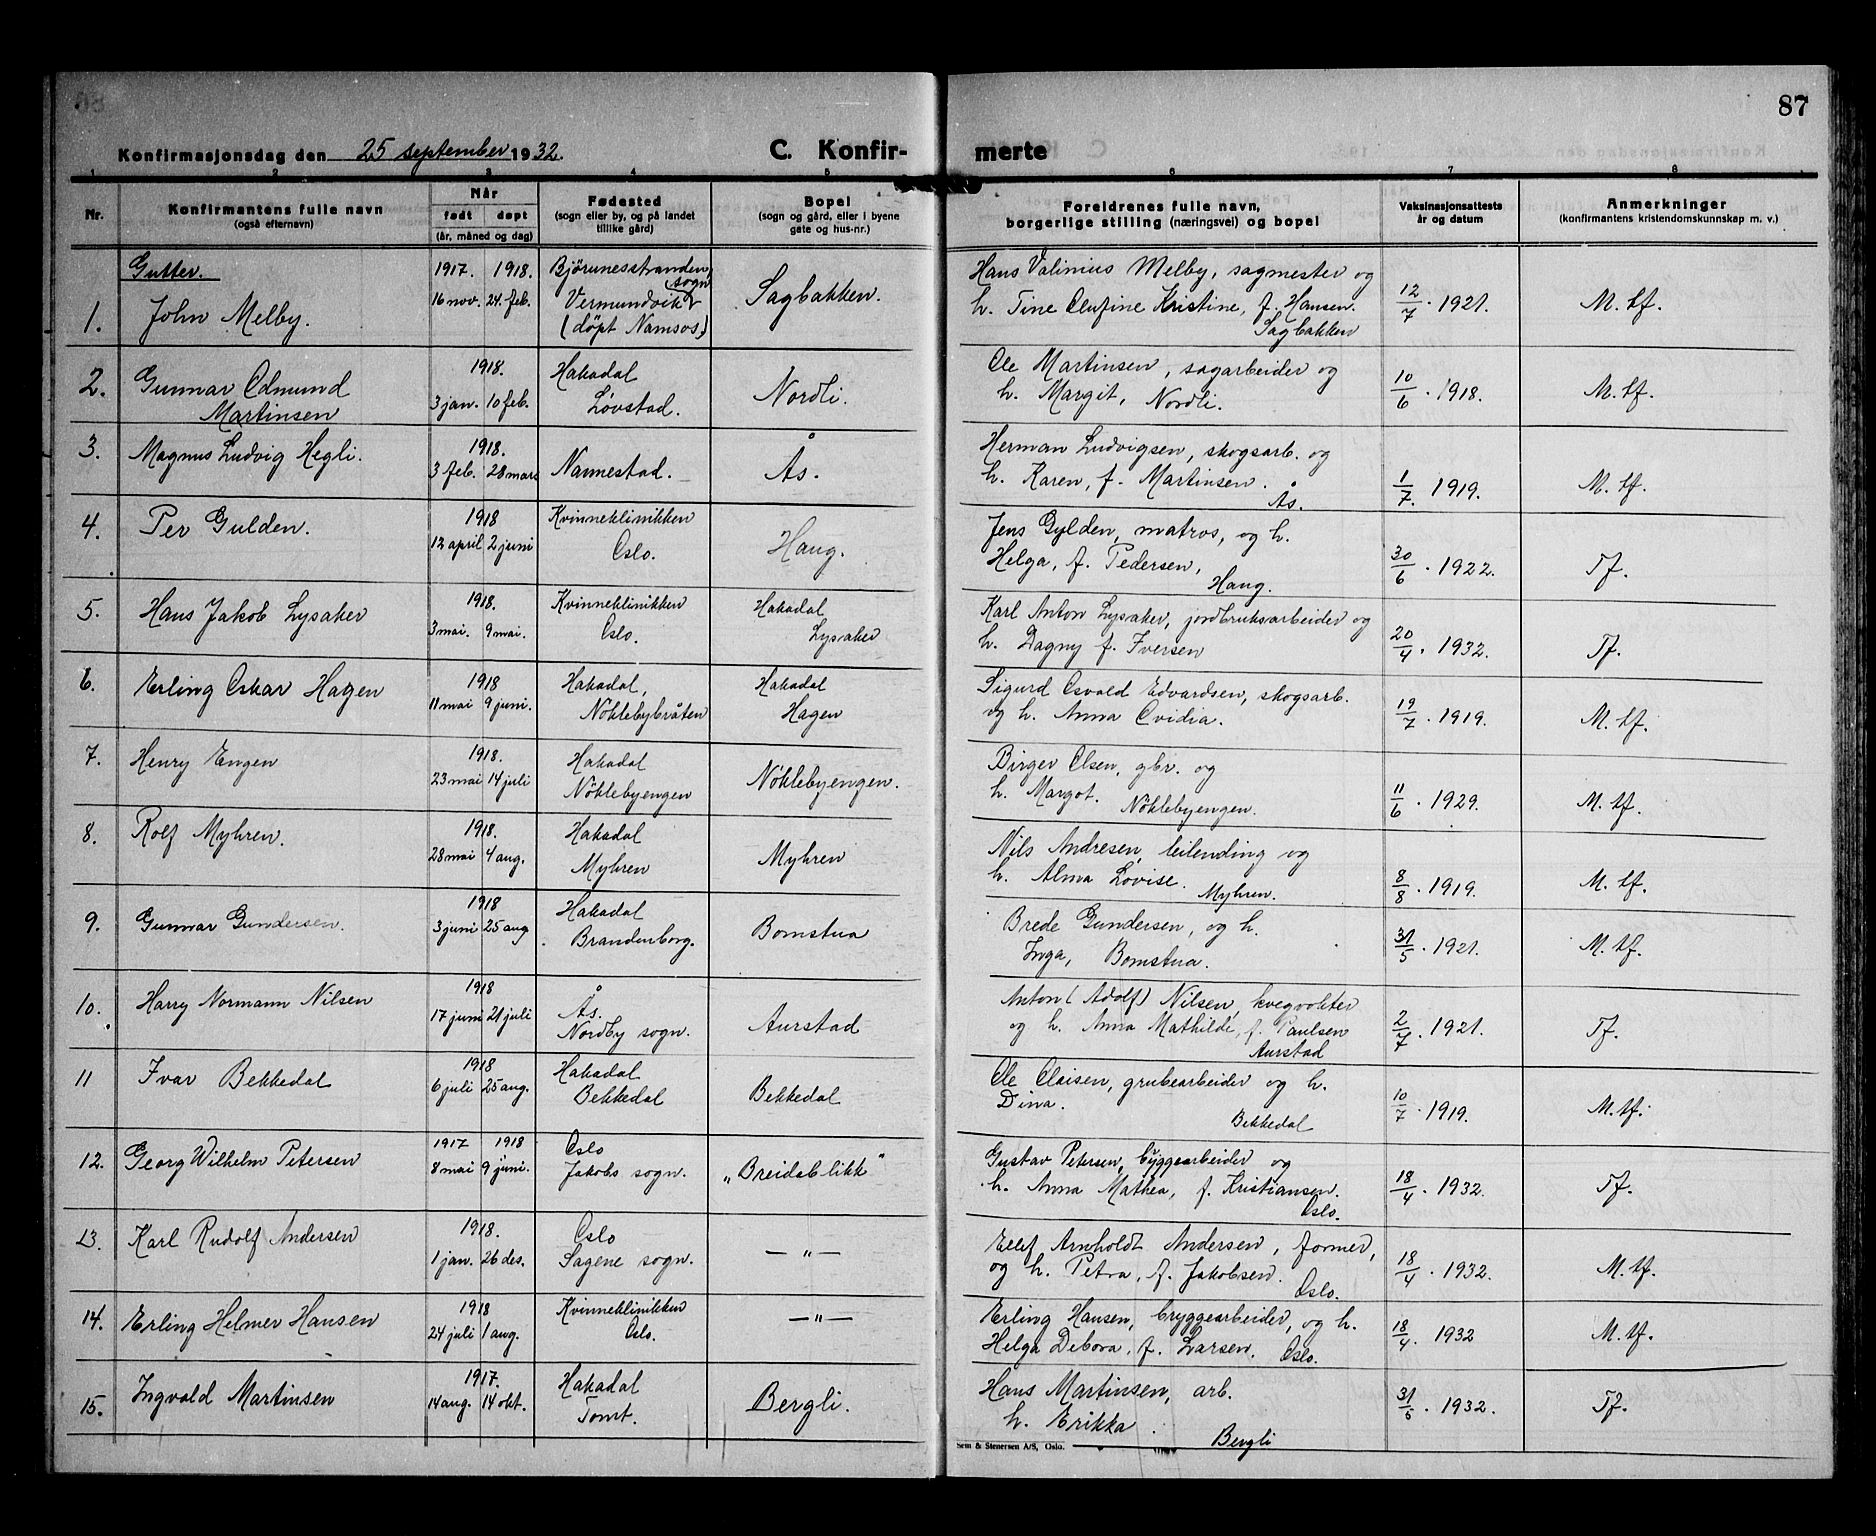 87
Konfirmasjonsdag den 25 september 1932.
C. Konfir-
merte
1 2 3 4 5 6 7 8
Nr.
Konfirmantens fulle navn
(også efternavn)
Når
født døpt
(år, måned og dag)
Fødested
(sogn eller by, og på landet
tillike gård)
Bopel
(sogn og gård, eller i byene
gate og hus-nr.)
Foreldrenes fulle navn,
borgerlige stilling (næringsvei) og bopel
Vaksinasjonsattests
år og datum
Anmerkninger
(konfirmantens kristendomskunnskap m. v.)
Gutter.
1. John Melby.
1917. 1918.
16 nov. 24. feb.
Björunesstranden
sogn
Vermundvik
(döpt Namsos)
Sagbakken.
Hans Valinius Melby, sagmester og
h. Tine Olufine Kristine, f. Hansen.
Sagbakken
12/7 · 1921.
M. tf.
2. Gunnar Edmund
Martinsen
1918.
3 jan. 10 feb.
Hakadal
Lövstad.
Nordli.
Ole Martinsen, sagarbeider og
h. Margit, Nordli.
10/6 · 1918.
M. tf.
3. Magnus Ludvig Hegli.
1918.
3 feb. 28 mars
Nannestad.
Ås.
Herman Ludvigsen, skogsarb. og
h. Karen, f. Martinsen.
Ås.
1/7. 1919.
M. tf.
4. Per Gulden.
1918
12 april 2 juni
Kvinneklinikken
Oslo.
Haug.
Jens Gylden, matros, og h.
Helga, f. Pedersen,
Haug.
30/6 · 1922.
Tf.
5. Hans Jakob Lysaker
1918.
3 mai. 9 mai.
Kvinneklinikken
Oslo.
Hakadal
Lysaker
Karl Anton Lysaker, jordbruksarbeider og
h. Dagny f. Iversen
20/4 · 1932.
Tf.
6. Erling Oskar Hagen
1918
11 mai 9 juni.
Hakadal,
Nöklebybråten
Hakadal
Hagen
Sigurd Osvald Edvardsen, skogsarb.
og h. Anna Ovidia.
19/7 · 1919.
M. tf.
7. Henry Engen
1918.
23 mai 14 juli
Hakadal
Nöklebyengen
Nöklebyengen.
Birger Olsen, gbr. og
h. Margot. Nöklebyengen.
11/6 · 1929.
M. tf.
8. Rolf Myhren.
1918.
28 mai 4 aug.
Hakadal
Myhren
Myhren
Nils Andresen, leilending og
h. Alma Lovise.
Myhren.
8/8 · 1919.
M. tf.
9. Gunnar Gundersen.
1918
3 juni 25 aug
Hakadal
Brandenborg.
Bomstua
Brede Gundersen, og h.
Inga, Bomstua.
31/5 · 1921.
M. tf.
10. Harry Normann Nilsen
1918
17 juni 21 juli
Ås.
Nordby sogn.
Aurstad
Anton (Adolf) Nilsen, kvegvokter
og h. Anna Mathilde, f. Paulsen
Aurstad
2/7 · 1921.
Tf.
11 Ivar Bekkedal
1918
6 juli 25 aug.
Hakadal
Bekkedal
Bekkedal
Ole Olaisen, grubearbeider og h.
Dina.
Bekkedal
10/7 · 1919.
M. tf.
12. Georg Wilhelm Petersen
1917 1918
8 mai 9 juni.
Oslo
Jakobs sogn.
„Breidablikk“
Gustav Petersen, byggearbeider og
h. Anna Mathea, f. Kristiansen.
Oslo.
18/4 · 1932.
Tf.
13. Karl Rudolf Andersen
1918.
1 jan. 26 des.
Oslo
Sagene sogn.
— „ —
Ellef Arnholdt Andersen, former,
og h. Petra, f. Jakobsen.
Oslo.
18/4 · 1932.
M. tf.
14. Erling Helmer Hansen
1918
24 juli 1 aug.
Kvinneklinikken
Oslo.
— „ —
Erling Hansen, bryggearbeider, og h.
Helga Debora, f. Larsen. Oslo.
18/4. 1932
M. tf.
15. Ingvald Martinsen
1917.
14 aug. 14 okt.
Hakadal
Tomt.
Bergli.
Hans Martinsen, arb.
h. Erikka.
Bergli
31/5 · 1932.
Tf.
Sem & Stenersen A/S, Oslo.